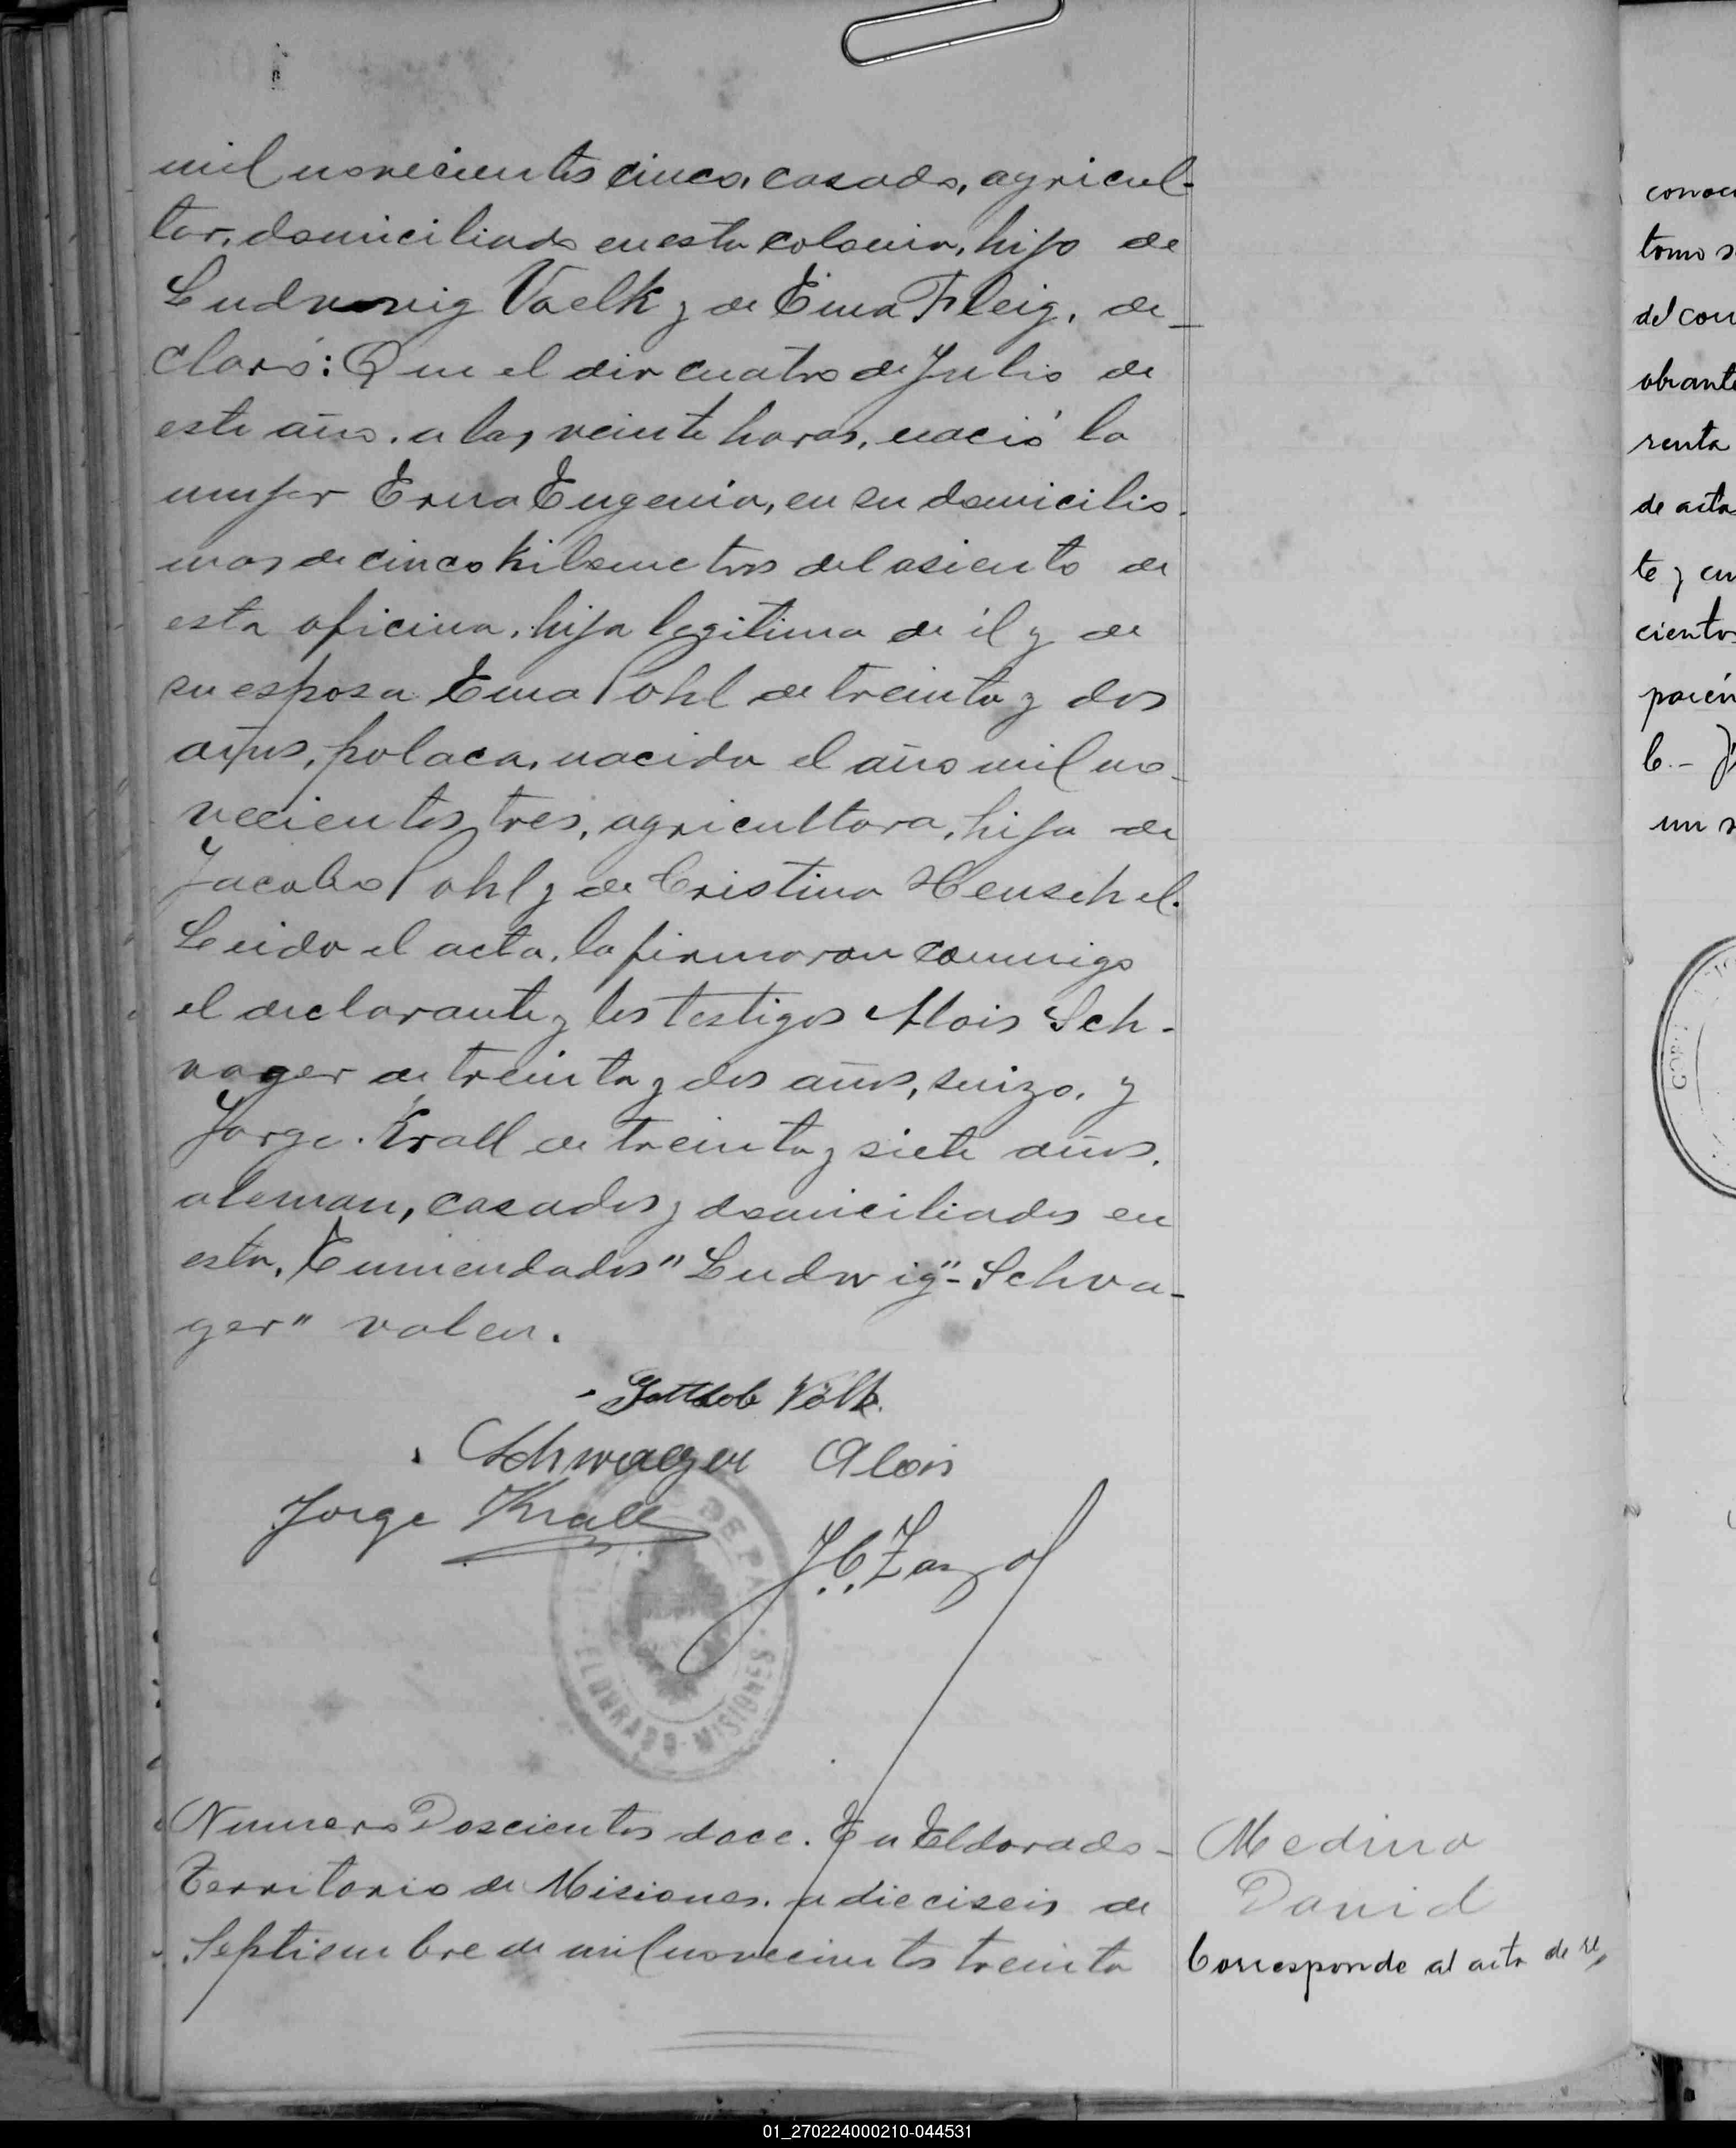 mil novecientos cinco, casado, agricul-
tor, domiciliado en esta colonia, hijo de
Ludwwig Voelk y de Ema Fleig, de-
claró: Que el dia cuatro de Julio de
este año, a las veinte horas, nació la
mujer Erna Eugenia, en su domicilio
mas de cinco kilometros del asiento de
esta oficina, hija legitima de él y de
su esposa Ema Pohl de treinta y dos
años, polaca, nacida el año mil no-
vecientos tres, agricultora, hija de
Jacobo Pohl y de Cristina Henschel.
Leida el acta, la firmaron conmigo
el declarante y los testigos Alois Sch-
vager de treinta y dos años, suizo, y
Jorge Krall de treinta y siete años,
aleman, casados y domiciliados en
esta. Enmendados "Ludwig"- Schva-
ger" valen.
Gottlob Völk.
Schwager Alois
Jorge Krall
J.C.
DE PA
ELDORADO - MISIONES
Numero Doscientos doce. En Eldorado-
Territorio de Misiones, a dieciseis de
Septiembre de mil novecientos treinta
Medina
David
Corresponde al acta de re,
conoci
tomo s
del cor
obrante
renta
de acta
te y cu
cientos
parén
b.- J
un
01_270224000210-044531